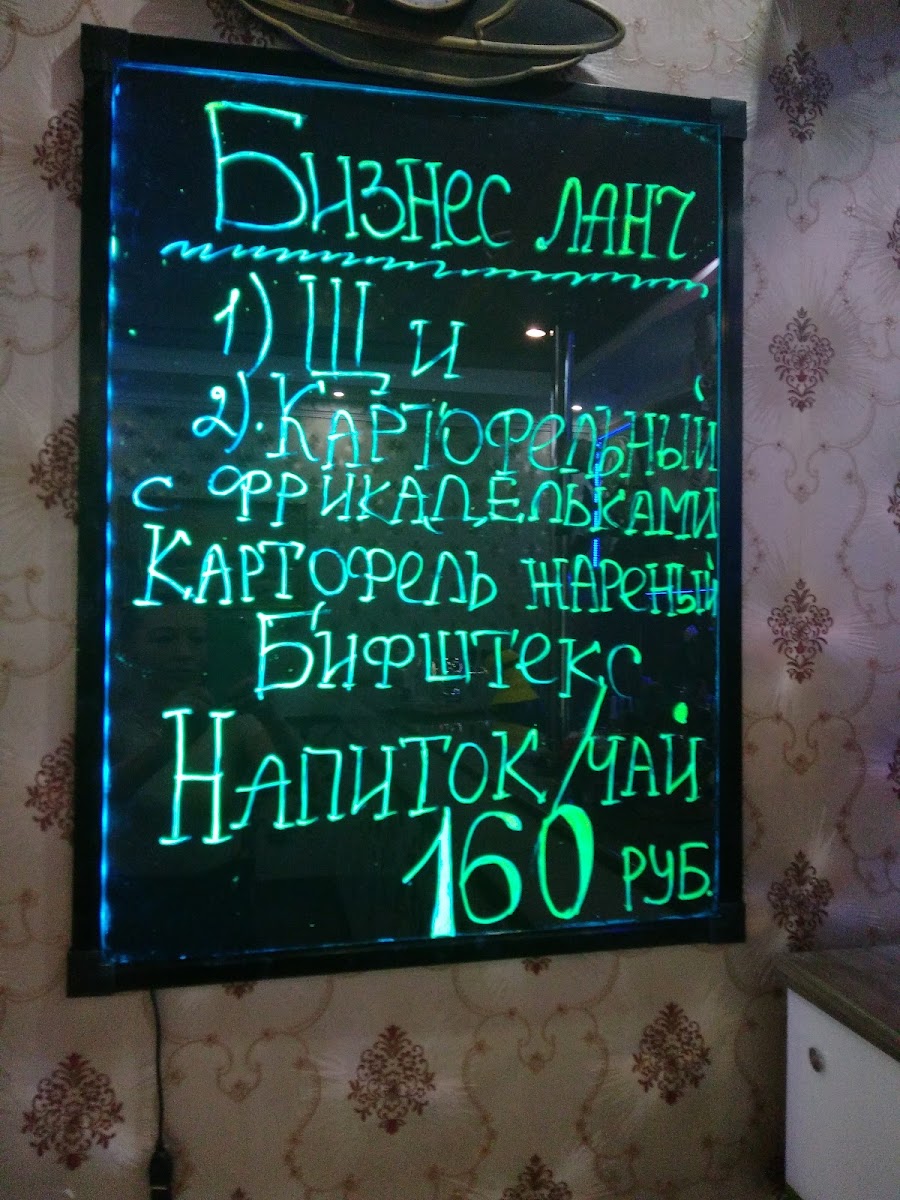 Бизнес ЛАНЧ
1) Щи
2). Картофельный
с фрикадельками
Картофель жареный
Бифштекс
Напиток/чай
160 руб.